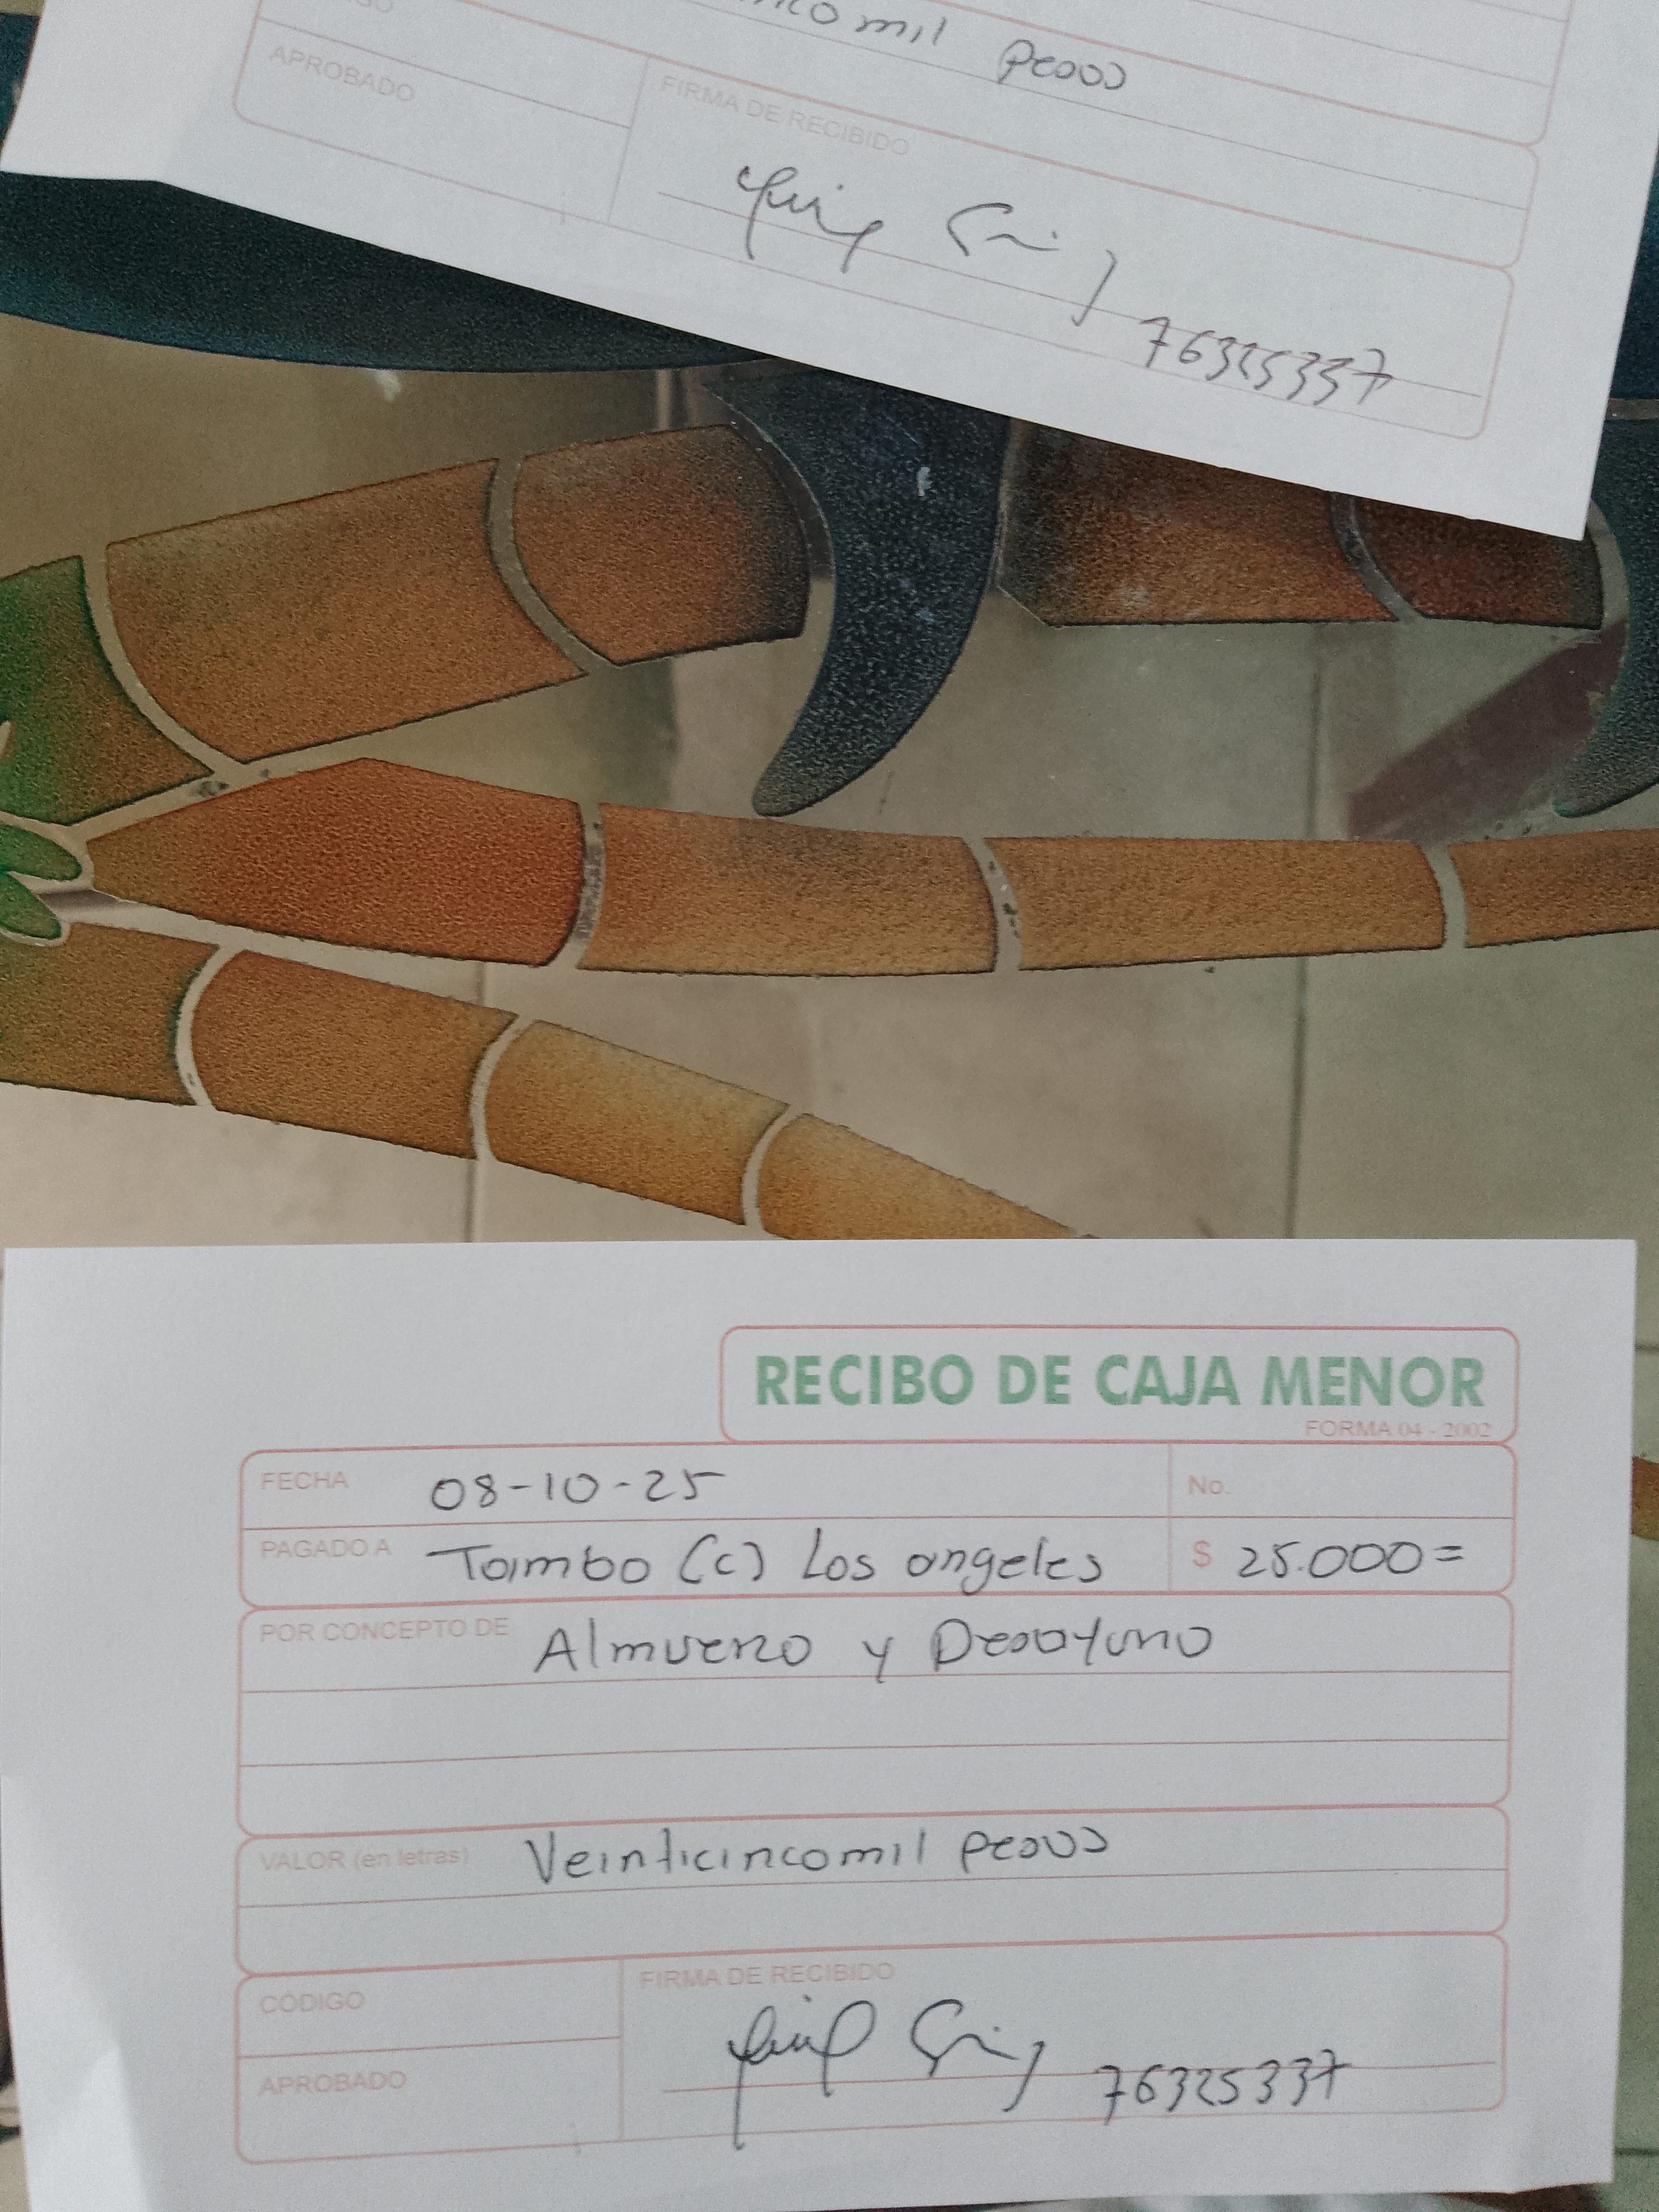 mil pesos
APROBADO
FIRMA DE RECIBIDO
76325337
RECIBO DE CAJA MENOR
FORMA 04 - 2002
FECHA 08-10-25 No.
PAGADO A Tambo (c) Los angeles $ 25.000=
POR CONCEPTO DE Almuerzo y Desayuno
VALOR (en letras) Veinticinco mil pesos
CÓDIGO
FIRMA DE RECIBIDO
76325337
APROBADO